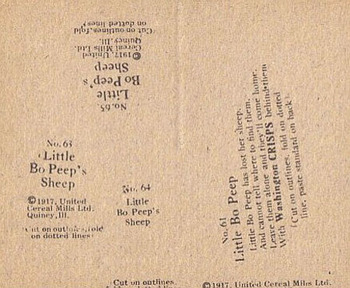 No. 65
Little
Bo Peep's
Sheep
© 1917, United
Cereal Mills Ltd.
Quincy, Ill.
(Cut on outlines, fold
on dotted lines)
No. 63
Little
Bo Peep's
Sheep
© 1917, United
Cereal Mills Ltd.
Quincy, Ill.
(Cut on outlines, fold
on dotted lines)
No. 64
Little
Bo Peep's
Sheep
(Cut on outlines
No. 61
Little Bo Peep
Little Bo Peep has lost her sheep,
And cannot tell where to find them,
Leave them alone and they'll come home,
With Washington CRISPS behind them
(Cut on outlines, fold on dotted
line, paste standard on back)
© 1917, United Cereal Mills Ltd.